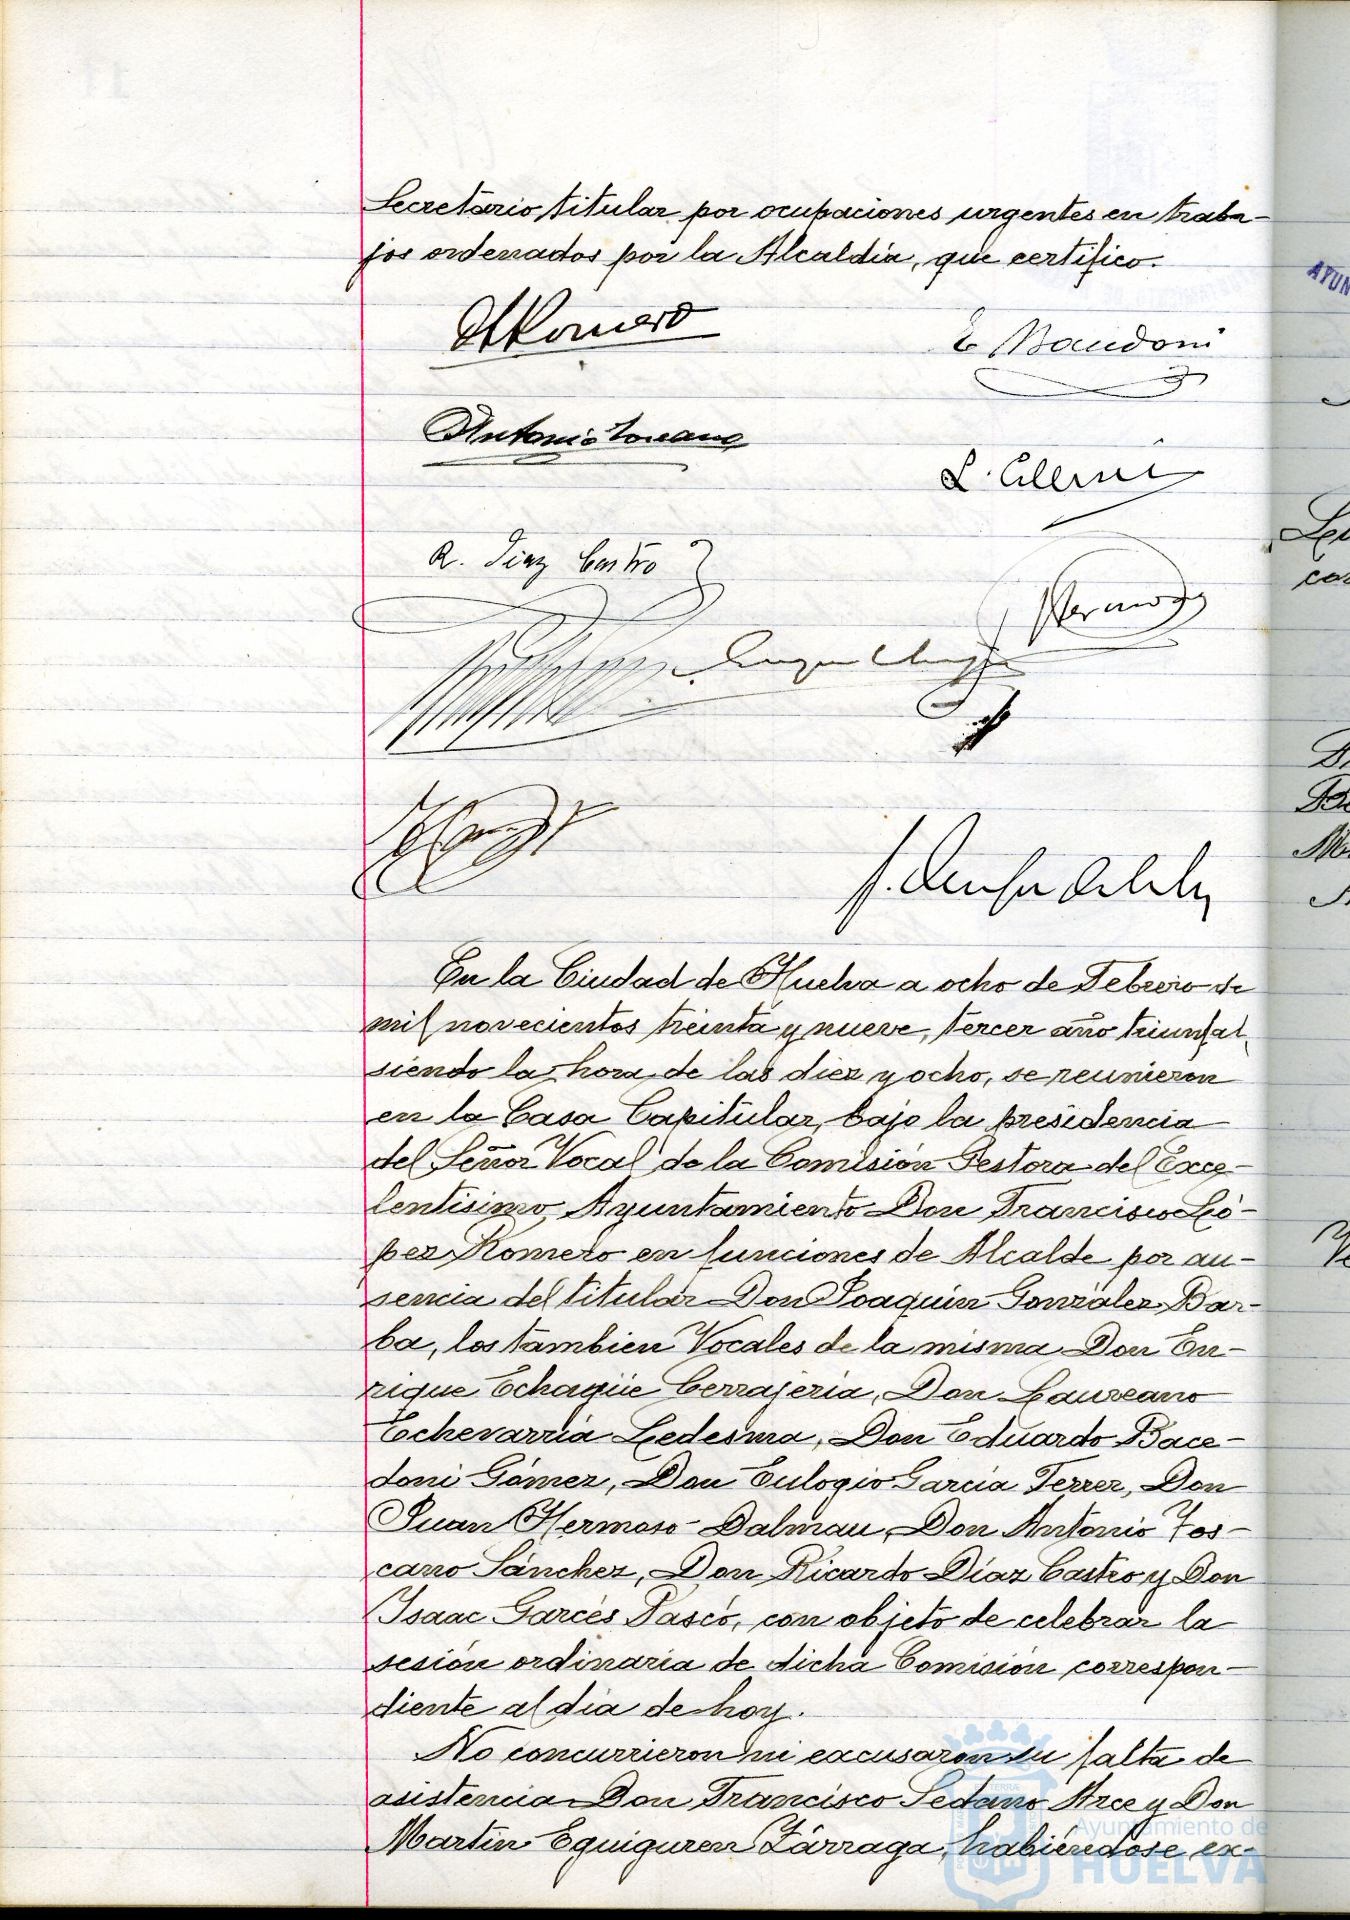 Secretario titular por ocupaciones urgentes en traba-
jos ordenados por la Alcaldía, que certifico.
Romero
E Bacedoni
Antonio Toscano
L. Echeverri
R. Diaz Castro
Hermoso
AYUN
En la Ciudad de Huelva a ocho de Febrero de
mil novecientos treinta y nueve, tercer año triunfal,
siendo la hora de las diez y ocho, se reunieron
en la Casa Capitular, bajo la presidencia
del Señor Vocal de la Comisión Gestora del Exce-
lentísimo Ayuntamiento Don Francisco Ló-
pez Romero en funciones de Alcalde por au-
sencia del titular Don Joaquín González Bar-
ba, los tambien Vocales de la misma Don En-
rique Echagüe Cerrajería, Don Laureano
Echevarría Ledesma, Don Eduardo Bace-
doni Gómez, Don Eulogio García Ferrer, Don
Juan Hermoso Dalmau, Don Antonio Tos-
cano Sánchez, Don Ricardo Díaz Castro y Don
Isaac Garcés Pascó, con objeto de celebrar la
sesión ordinaria de dicha Comisión correspon-
diente al día de hoy.
No concurrieron ni excusaron su falta de
asistencia Don Francisco Sedano Arce y Don
Martín Eguiguren Zárraga, habiéndose ex-
Ayuntamiento de
HUELVA